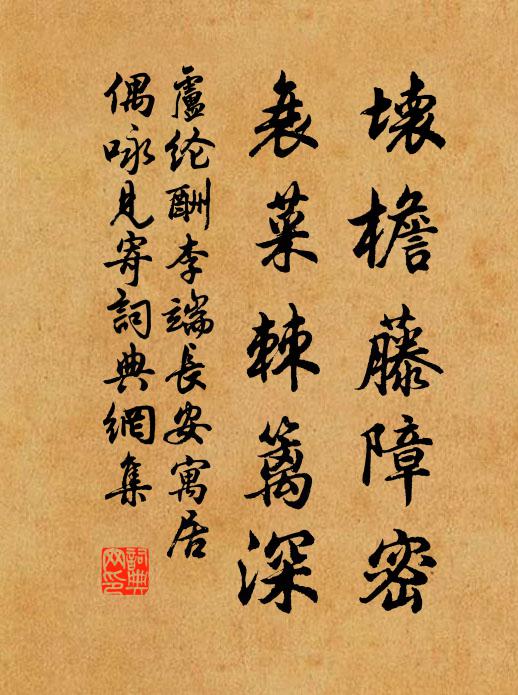 壞檐藤障密
衰菜棘籬深
盧纶酬李端長安寓居
偶咏見寄詞典網集
詞典网印